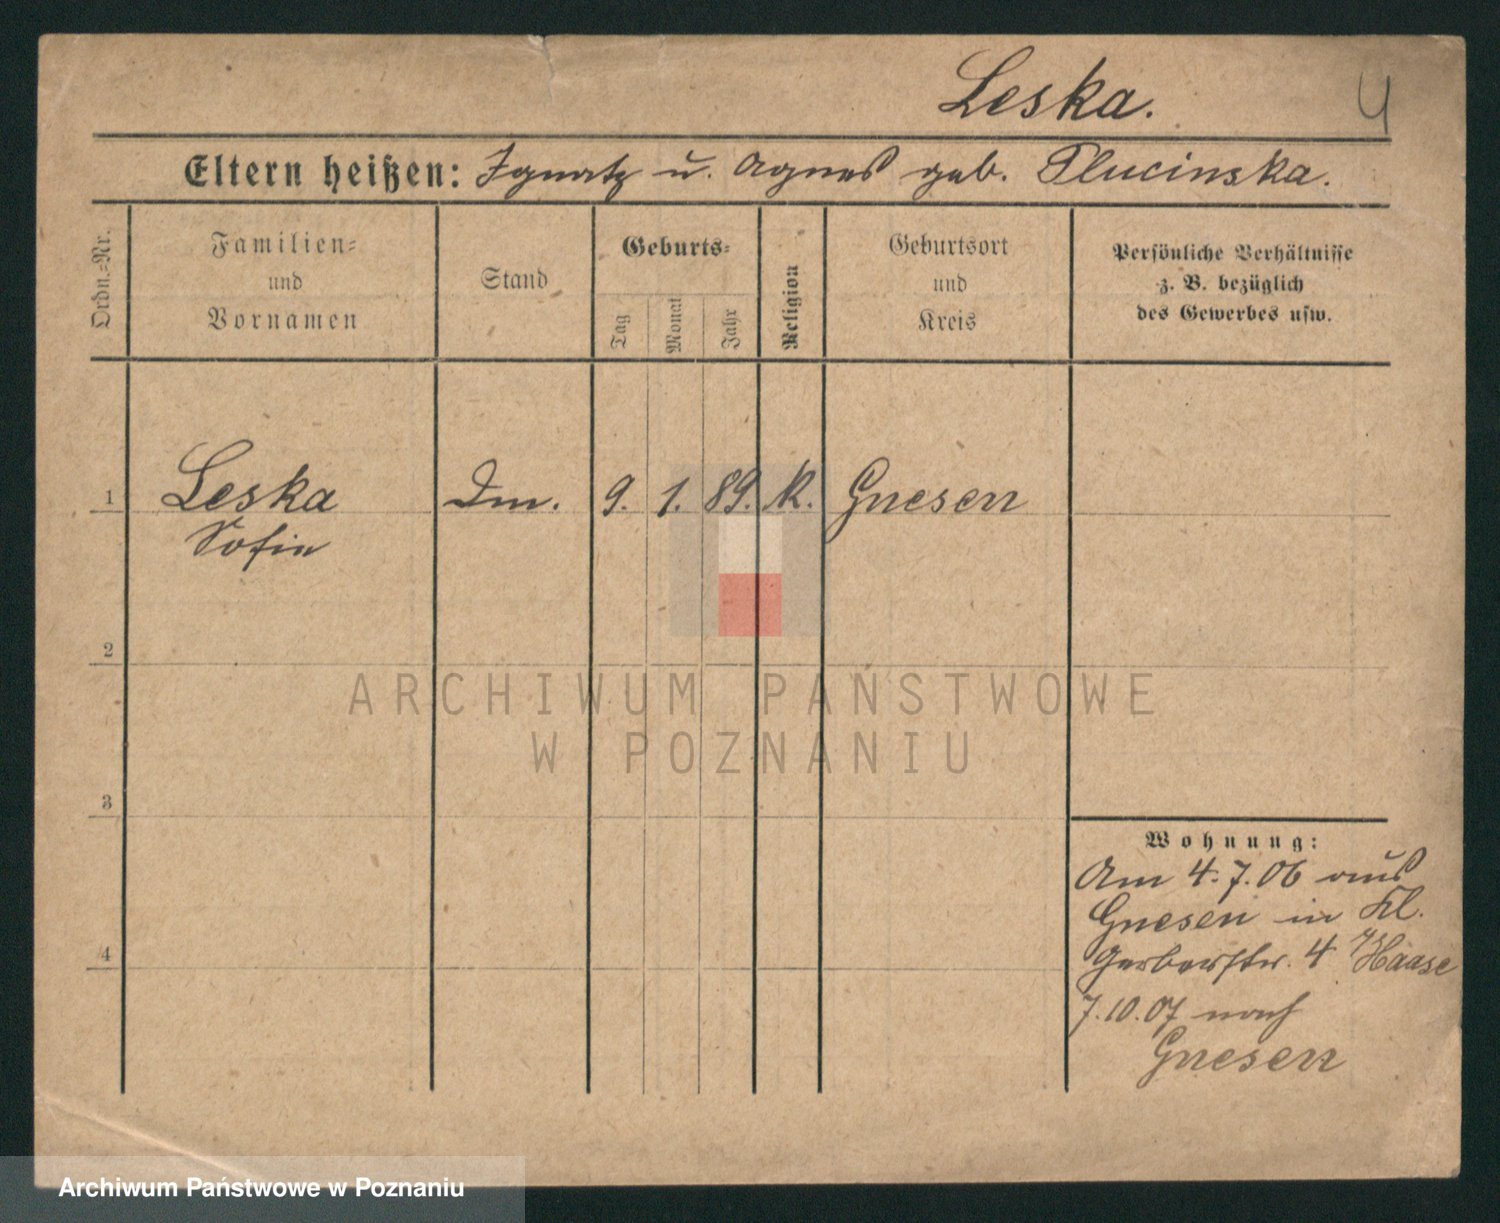 Leska.
4
Eltern heißen: Ignatz u. Agnes geb. Plucinska.
Ordn.-Nr.
Familien-
und
Vornamen
Stand
Geburts-
Tag
Monat
Jahr
Religion
Geburtsort
und
Kreis
Persönliche Verhältnisse
z. B. bezüglich
des Gewerbes usw.
1 Leska Dm. 9. 1. 89. K. Gnesen
Sofie
2
3
4
Wohnung:
Am 4.7.06 aus
Gnesen in Kl.
Gerberstr. 4 Haase
7.10.07 nach
Gnesen
ARCHIWUM PAŃSTWOWE
W POZNANIU
Archiwum Państwowe w Poznaniu